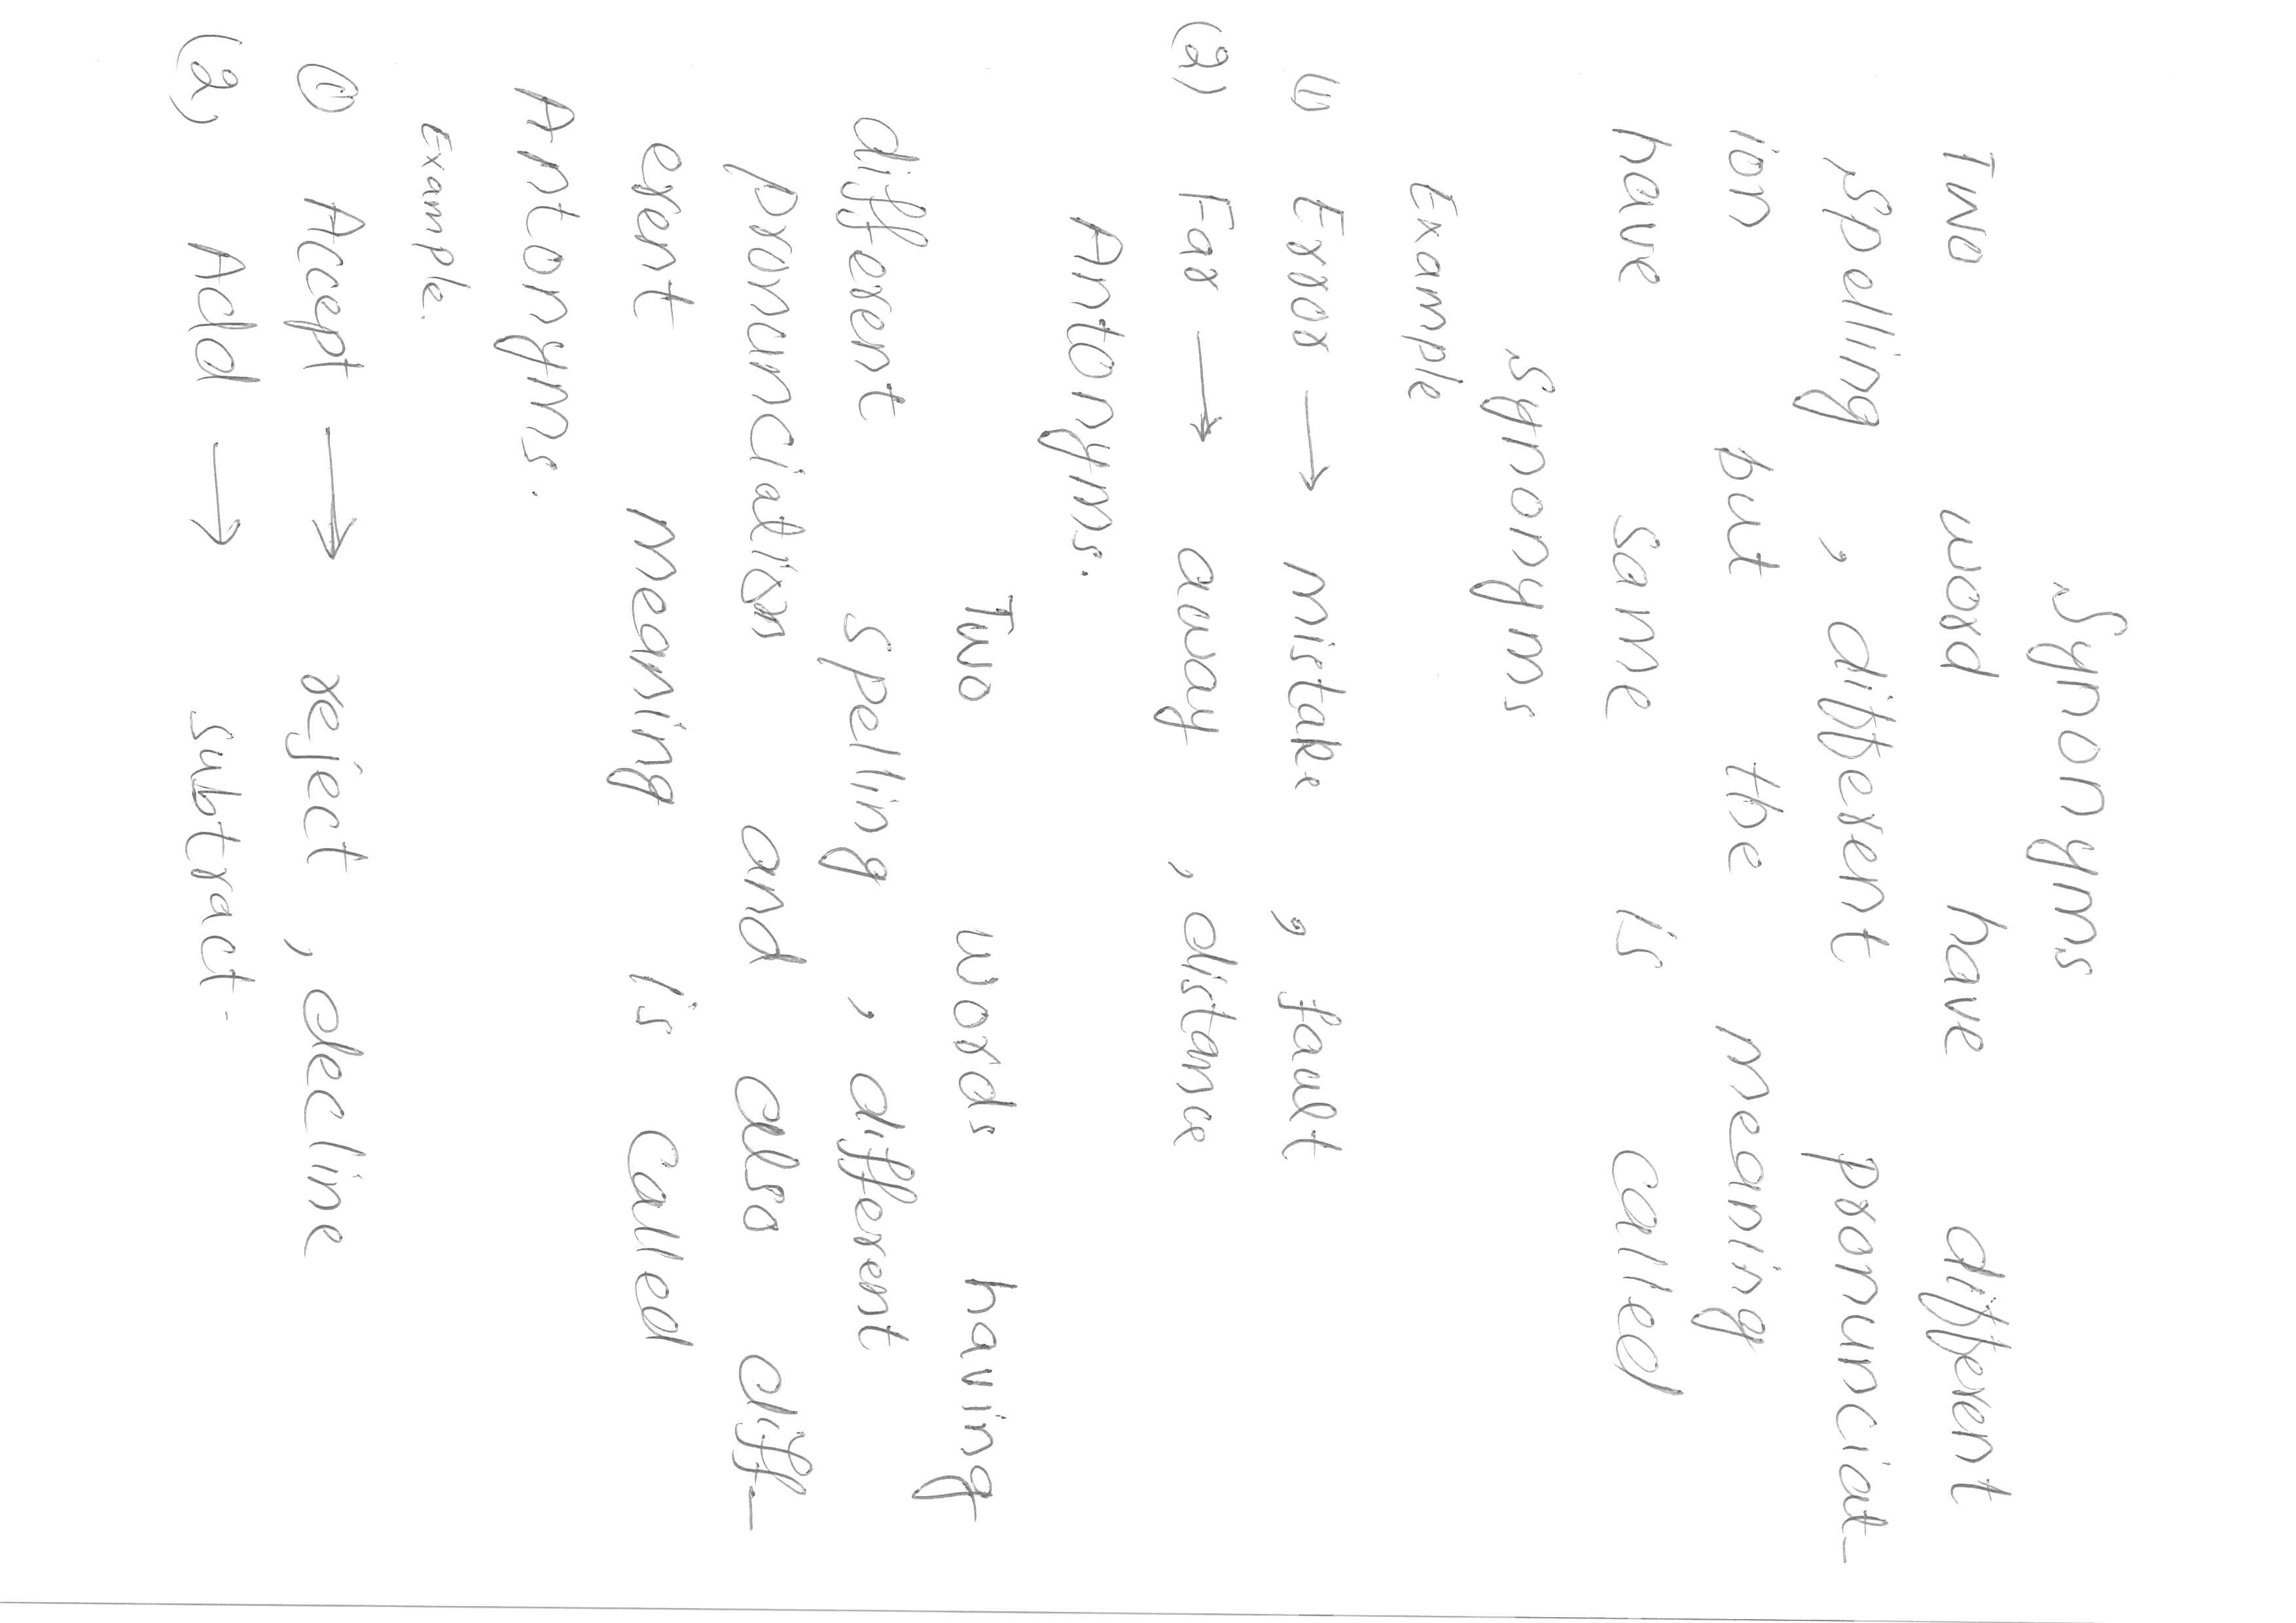 Synonyms
Two word have different
spelling , different pronunciat-
ion but the meaning
have same is called
synonyms
Example
(1) Error → mistake , fault
(2) Far → away , distance
Antonyms.
Two words having
different spelling , different
pronunciation and also diff-
erent meaning is called
Antonyms.
Example.
(1) Accept → reject , decline
(2) Add → subtract.